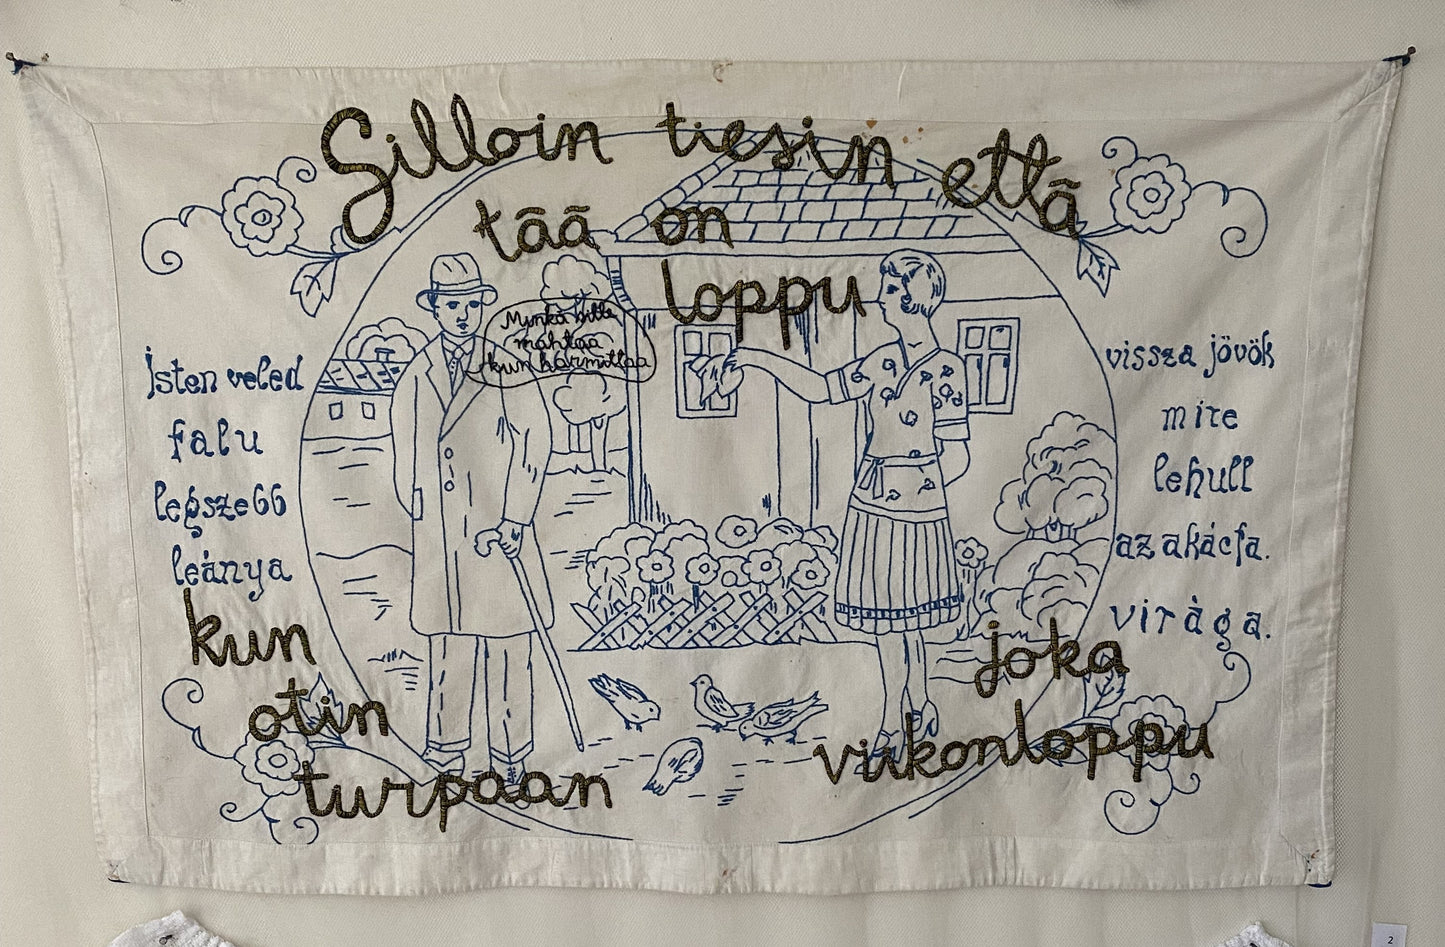 Silloin tiesin että
tää on
loppu
Minkä sille
mahtaa
kun harmittaa
Isten veled
falu
legszebb
leánya
vissza jövök
mire
lehull
az akácfa.
viràga.
kun
otin
turpaan
joka
viikonloppu
2